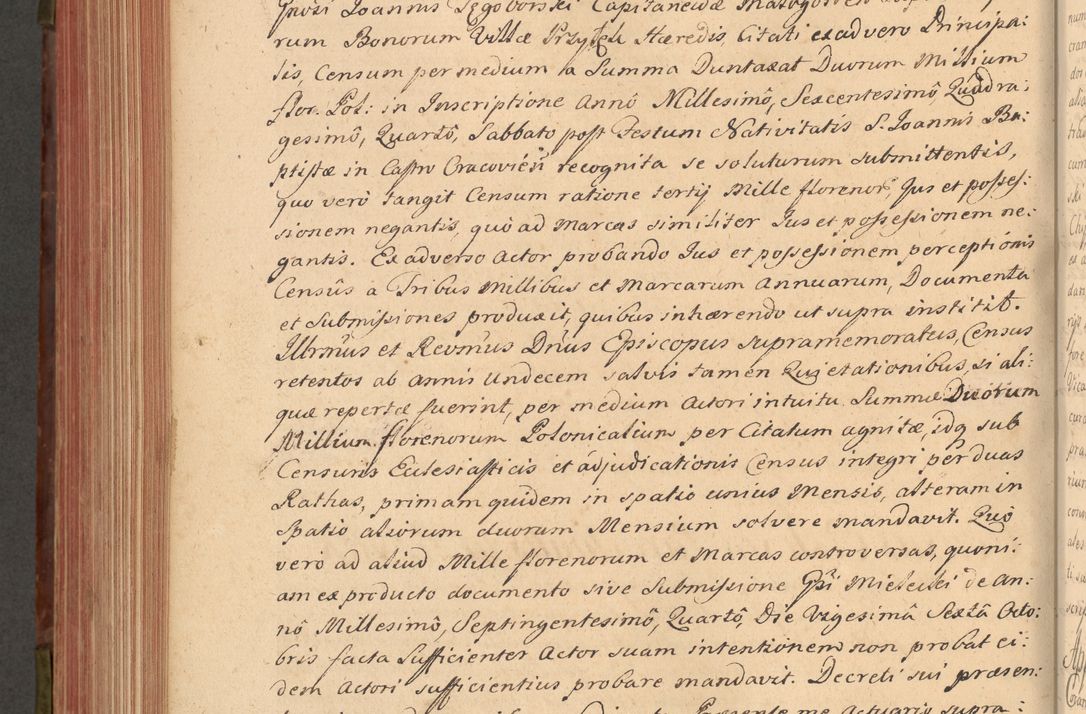 Gnosi Joannis Szgoborski Capitaneidæ
rum Bonorum Villæ Przyłęk Hæredis, Citati exadvero Principa:
lis, Censum per medium a Summa Duntaxat Duorum Millium
flor. Pol: in Inscriptione Annô Millesimô, Sexcentesimô Quadra:
gesimô, Quartô, Sabbato post Festum Nativitatis S. Joannis Ba:
ptistæ in Castro Cracovien̄ recognita se soluturum submittentis,
quo verò tangit Censum ratione tertij Mille florenor̄, Jus et posses:
sionem negantis, quò ad Marcas similiter Jus et possessionem ne:
gantis. Ex adverso Actor probando Jus et possessionem perceptionis
Censûs à Tribus Millibus et Marcarum Annuarum, Documenta
et Submissiones produxit, quibus inhærendo ut supra institit.
Illr̄mus et Revm̄us Dn̄us Episcopus supramemoratus, Census
retentos ab Annis Undecem salvis tamen Quietationibus, si ali:
quæ repertæ fuerint, per medium Actori intuitu Summæ Duorum
Millium florenorum Polonicalium per Citatum agnitæ, idq̄ sub
Censuris Eclesiasticis et adjudicationis Census integri per duas
Rathas, primam quidem in spatio unius Mensis, alteram in
Spatio aliorum duorum Mensium solvere mandavit. Quò
verò ad aliud Mille florenorum et Marcas controversas, quoni:
am ex producto documento sive Submissione Gsi Mielecki de An:
nô Millesimô, Septingentesimô, Quartô, Die Vigesimâ Sextâ Octo:
bris facta Sufficienter Actor suam intentionem non probat ei:
dem Actori sufficientius probare mandavit. Decreti sui præsen:
Præsente me Actuario supra: